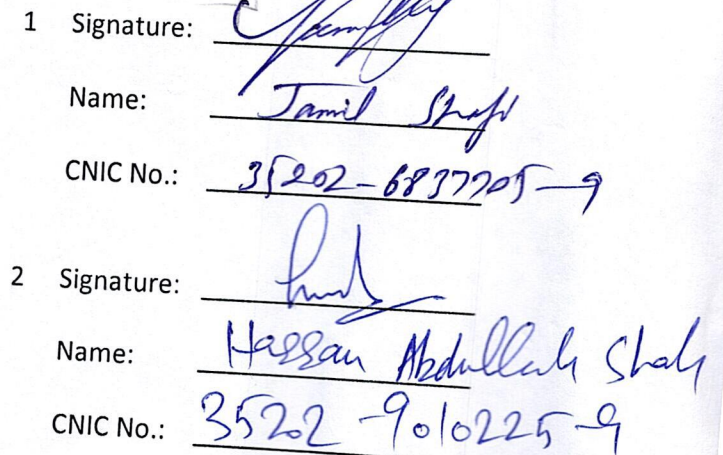 1 Signature:
Name: Jamil Shafi
CNIC No.: 35202-6837705-9
2 Signature:
Name: Hassan Abdullah Shah
CNIC No.: 35202-9010225-9